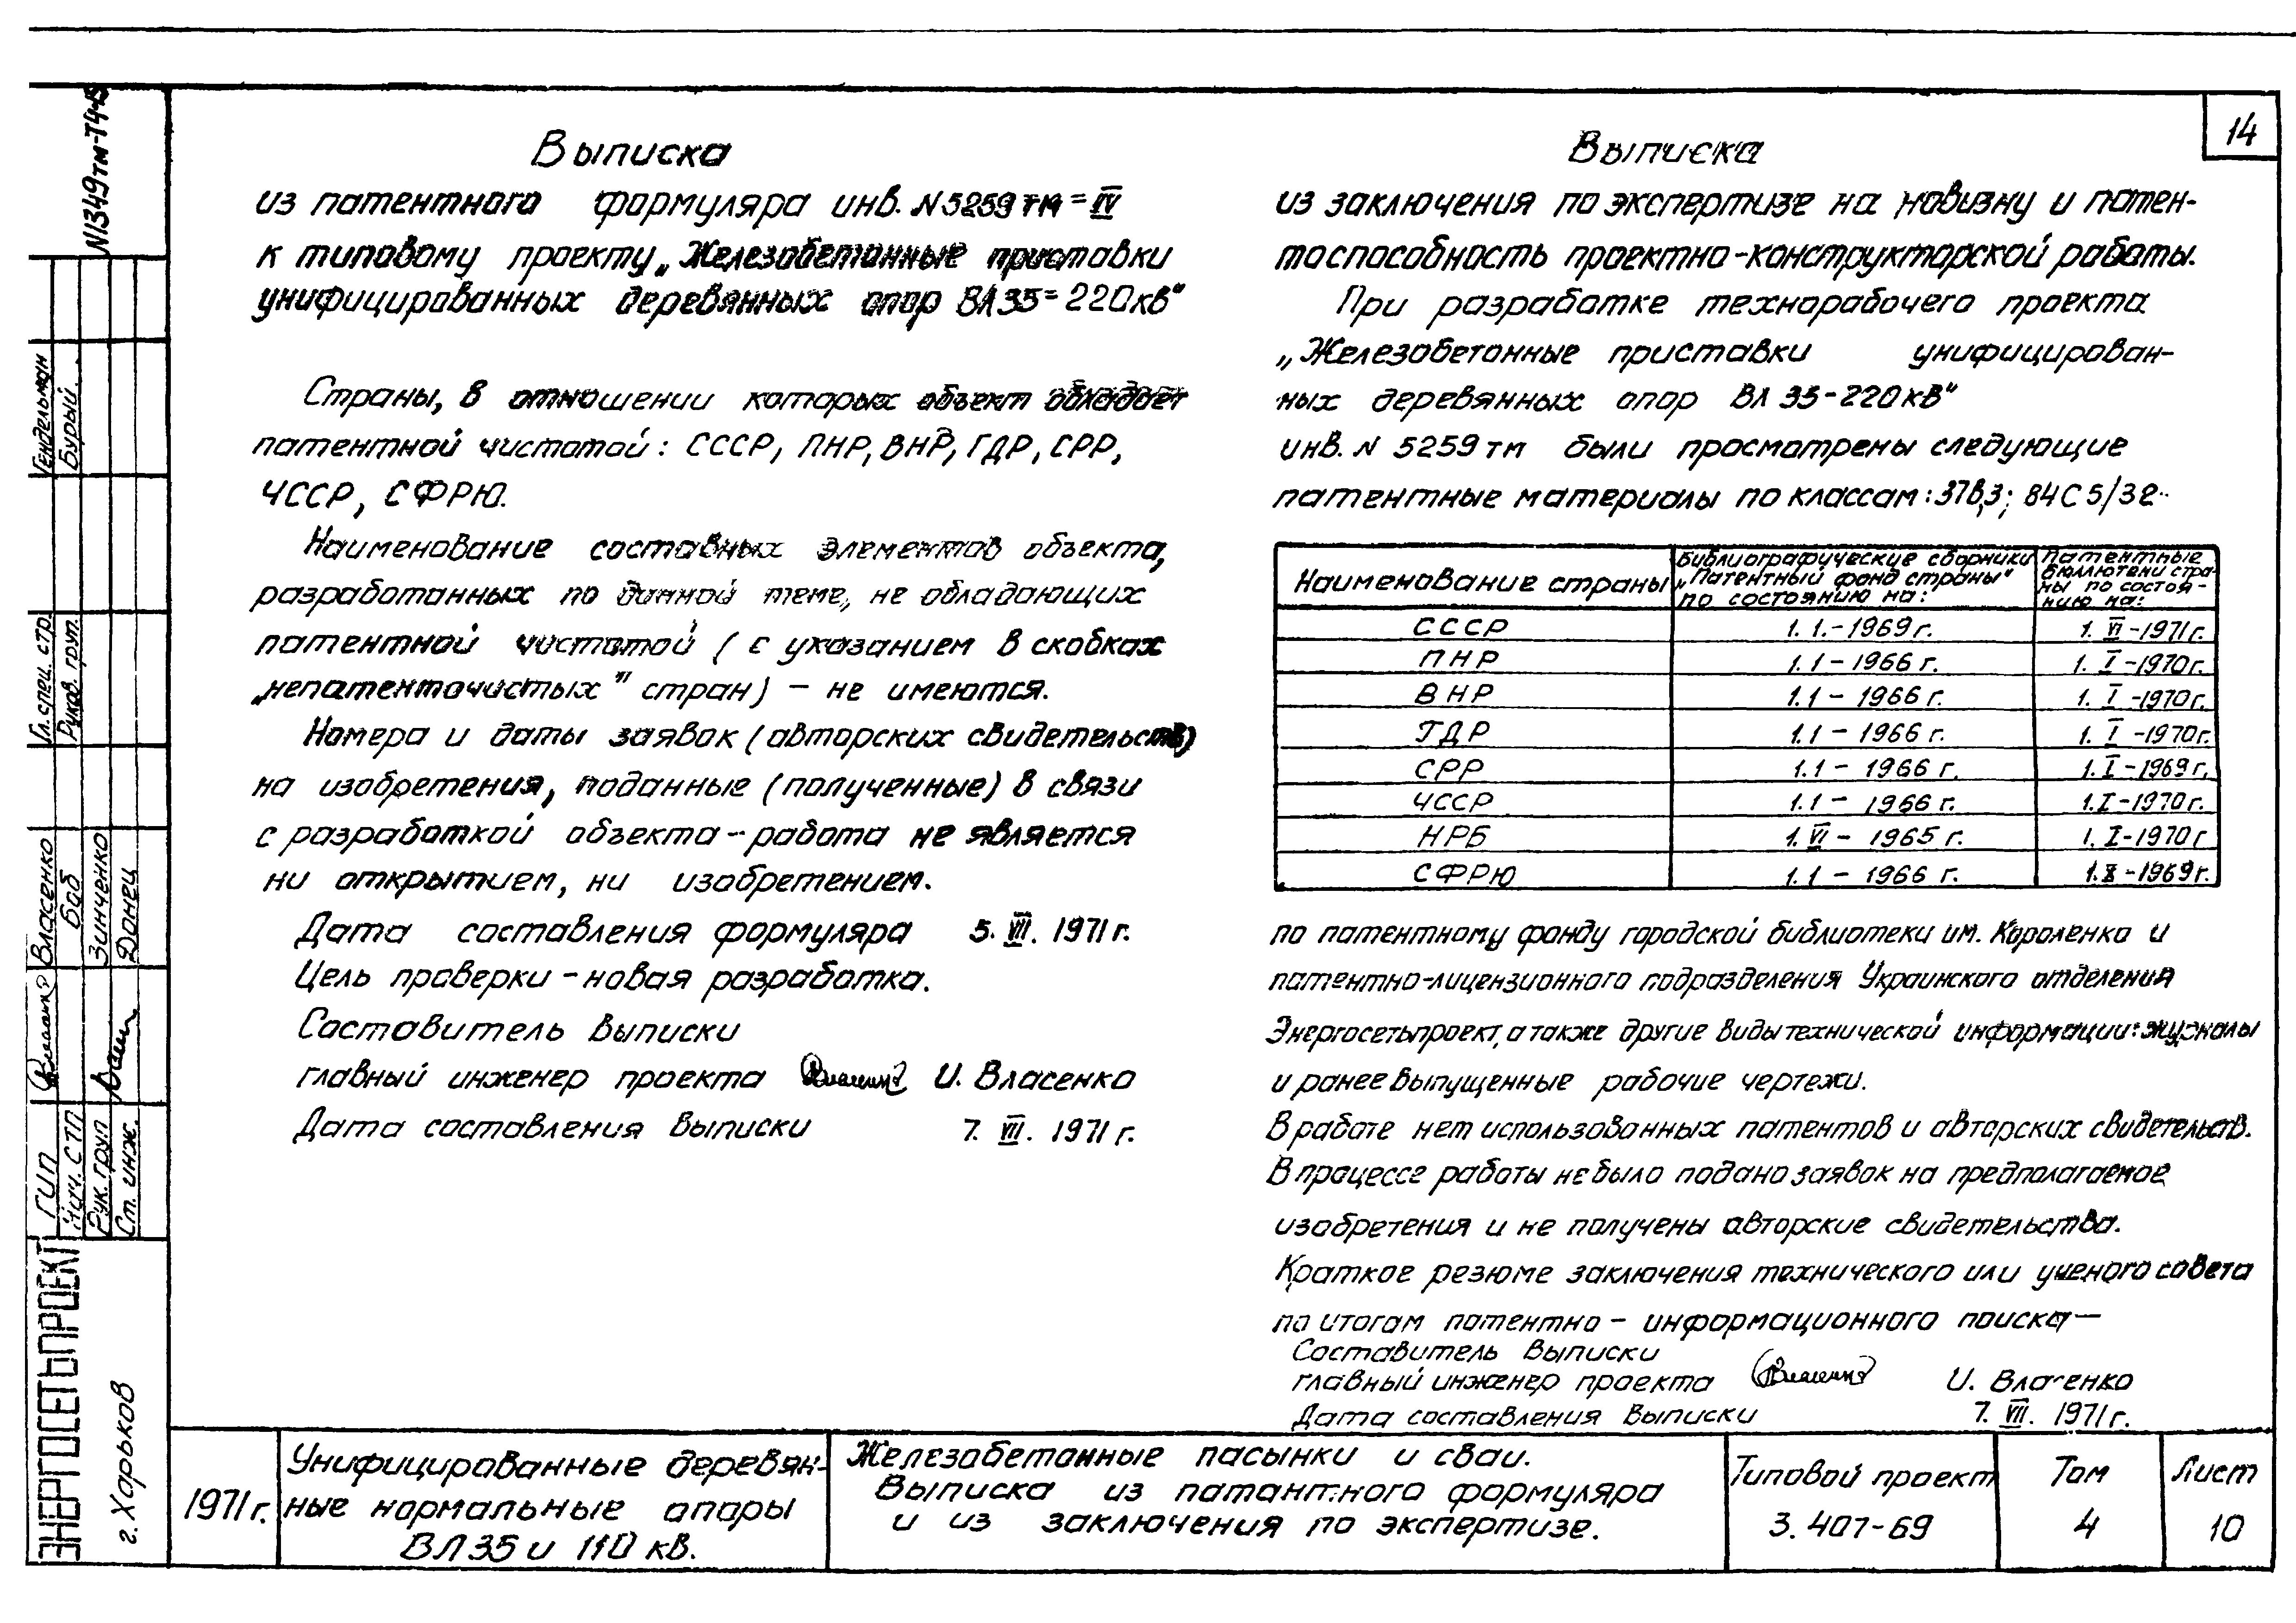 14
N1349тм-Т4-15
Выписка
из патентного формуляра инв. N 5259 тм-IV
к типовому проекту „Железобетонные приставки
унифицированных деревянных опор ВЛ 35-220кв"
Страны, в отношении которых объект обладает
патентной чистотой: СССР, ПНР, ВНР, ГДР, СРР,
ЧССР, СФРЮ.
Наименование составных элементов объекта,
разработанных по данной теме, не обладающих
патентной чистотой (с указанием в скобках
„непатенточистых" стран) – не имеются.
Номера и даты заявок (авторских свидетельств)
на изобретения, поданные (полученные) в связи
с разработкой объекта - работа не является
ни открытием, ни изобретением.
Дата составления формуляра 5. VII. 1971 г.
Цель проверки – новая разработка.
Составитель выписки
главный инженер проекта И. Власенко
Дата составления выписки 7. VII. 1971 г.
Выписка
из заключения по экспертизе на новизну и патен-
тоспособность проектно-конструкторской работы.
При разработке технорабочего проекта
„Железобетонные приставки унифицирован-
ных деревянных опор ВЛ 35-220кВ"
инв. N 5259 тм были просмотрены следующие
патентные материалы по классам: 37в,3; 84С 5/32
Наименование страны
Библиографические сборники „Патентный фонд страны" по состоянию на:
Патентные бюллютени страны по состоя-нию на:
СССР 1. 1.-1969 г. 1. VI-1971г.
ПНР 1.1 – 1966 г. 1. I-1970г.
ВНР 1.1 – 1966 г. 1. I-1970г.
ГДР 1.1 – 1966 г. 1. I-1970г.
СРР 1.1 – 1966 г. 1. I-1969г.
ЧССР 1.1 – 1966 г. 1.I-1970г.
НРБ 1. VI – 1965 г. 1. I-1970г
СФРЮ 1.1 – 1966 г. 1.X-1969г.
по патентному фонду городской библиотеки им. Короленко и
патентно-лицензионного подразделения Украинского отделения
Энергосетьпроект, а также другие виды технической информации: журналы
и ранее выпущенные рабочие чертежи.
В работе нет использованных патентов и авторских свидетельств.
В процессе работы не было подано заявок на предполагаемое
изобретения и не получены авторские свидетельства.
Краткое резюме заключения технического или ученого совета
по итогам патентно – информационного поиска –
Составитель выписки
главный инженер проекта И. Власенко
Дата составления выписки 7. VII. 1971 г.
Гл. спец. стр. Гендельман
Руков. груп. Бурый
ГИП Власенко
Нач. СТП Боб
Рук. груп Зинченко
Ст. инж. Донец
ЭНЕРГОСЕТЬПРОЕКТ
г. Харьков
1971 г.
Унифицированные деревян-
ные нормальные опоры
ВЛ 35 и 110 кв.
Железобетонные пасынки и сваи.
Выписка из патантного формуляра
и из заключения по экспертизе.
Типовой проект
3.407-69
Том
4
Лист
10